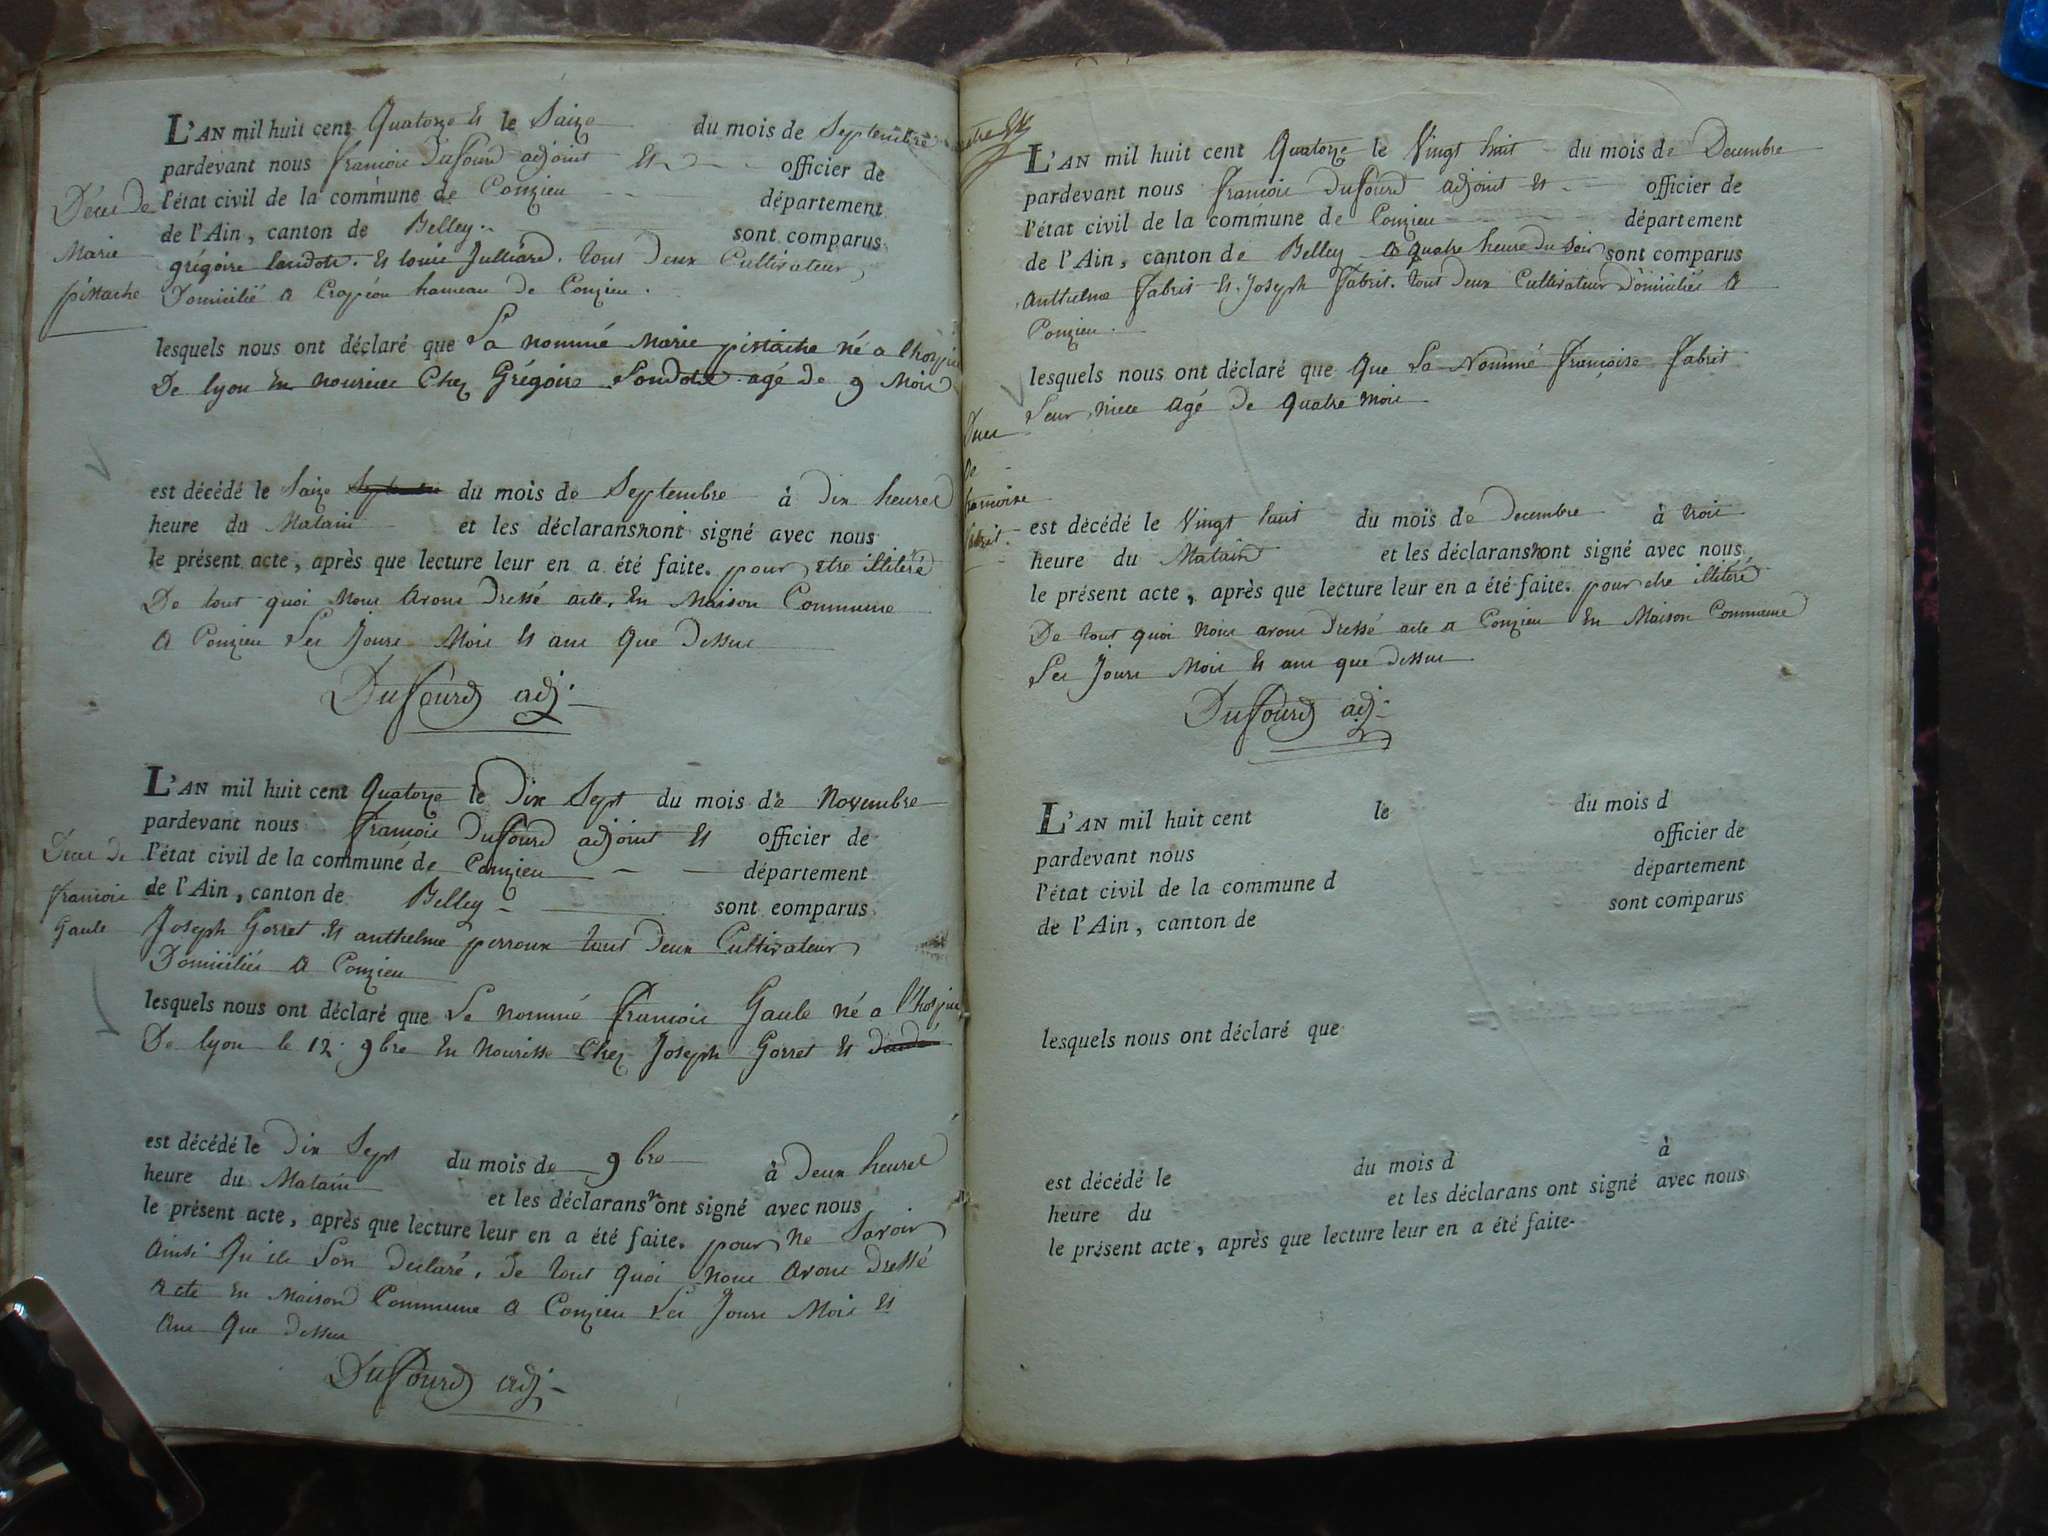 L'AN mil huit cent Quatorze et le Saize du mois de Septembre
pardevant nous François Dufourd adjoint Et officier de
l'état civil de la commune de Conzieu département
de l'Ain, canton de Belley. sont comparus
grégoire Et louis Julliard. tous Deux Cultivateur
Domicilié a Crapéou hameau de Conzieu.
Déces de
Marie
pistache
lesquels nous ont déclaré que La nommé Marie pistache né a lhospice
De lyon En nourice Chez Grégoire agé de 9 Mois
est décédé le Saize Septembre du mois de Septembre à Dix heures
heure du Matain et les déclarans n'ont signé avec nous
le présent acte, après que lecture leur en a été faite. pour etre illiteré
De tout quoi Nous Avons Dressé acte. En Maison Commune
A Conzieu Les Jours Mois Et ans que Dessus
Dufourd adj.
L'AN mil huit cent Quatorze le Dix Sept du mois de Novembre
pardevant nous François Dufourd adjoint Et officier de
l'état civil de la commune de Conzieu département
de l'Ain, canton de Belley sont comparus
Joseph Gorret Et anthelme perroux tous Deux Cultivateur
Domiciliés A Conzieu
Déces de
François
Gaule
lesquels nous ont déclaré que Le nommé François Gaule né a l'hospice
De lyon le 12. 9bre En Nourisse Chez Joseph Gorret Et
est décédé le Dix Sept du mois de 9bre à Deux heures
heure du Matain et les déclarans n'ont signé avec nous
le présent acte, après que lecture leur en a été faite. pour Ne Savoir
Ainsi Qu'ils Son Declaré. De tout quoi Nous Avons Dressé
Acte En Maison Commune A Conzieu Les Jours Mois Et
Ans Que Dessus
Dufourd adj.
L'AN mil huit cent Quatorze le Vingt huit du mois de Decembre
pardevant nous François Dufourd adjoint Et officier de
l'état civil de la commune de Conzieu département
de l'Ain, canton de Belley a quatre heure du soir sont comparus
Anthelme Fabrit Et Joseph Fabrit. tout deux Cultivateur Domiciliés A
Conzieu.
lesquels nous ont déclaré que Que La Nommé Françoise Fabrit
Leur niece Agé de Quatre mois
Déces
de
françoise
fabrit
est décédé le Vingt huit du mois de Decembre à trois
heure du Matain et les déclarans n'ont signé avec nous
le présent acte, après que lecture leur en a été faite. pour etre illiteré
De tout quoi Nous avons Dressé acte a Conzieu En Maison Commune
Les Jours Mois Et ans que dessus
Dufourd adj.
L'AN mil huit cent le du mois d
pardevant nous officier de
l'état civil de la commune d département
de l'Ain, canton de sont comparus
lesquels nous ont déclaré que
est décédé le du mois d à
heure du et les déclarans ont signé avec nous
le présent acte, après que lecture leur en a été faite.